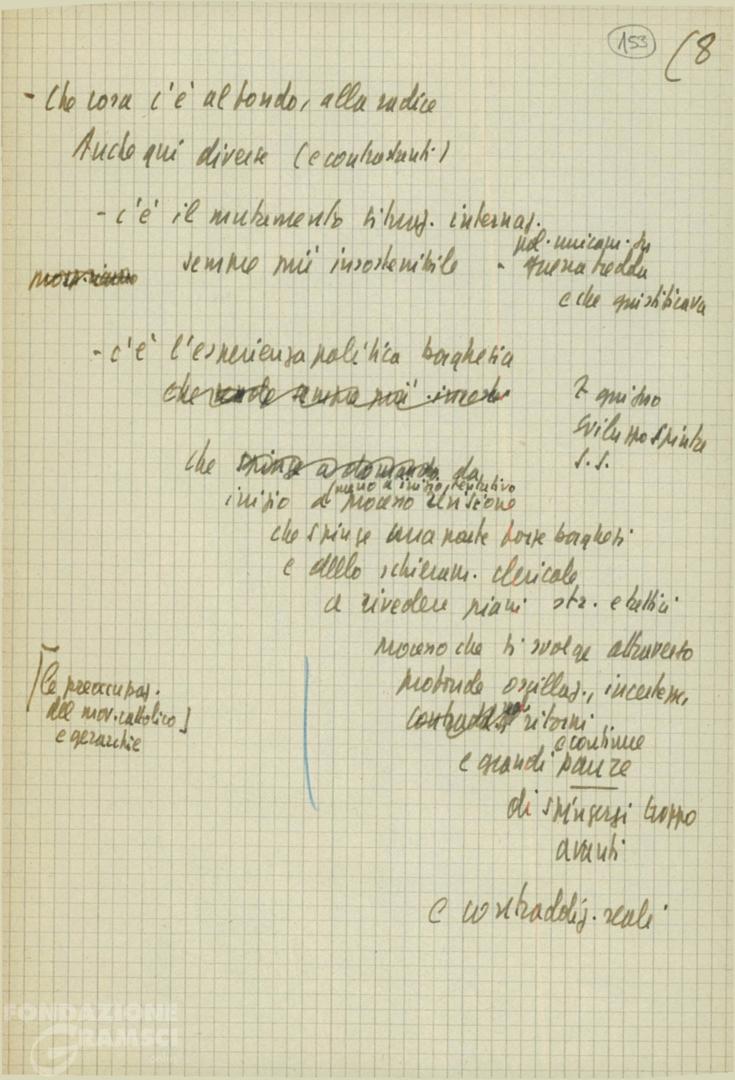 153 (8
- Che cosa c'è al fondo, alla radice
Anche qui diverse (e contrastanti)
- c'è il mutamento situaz. internaz.
sempre più insostenibile - pol. unicam. di
guerra fredda
e che giustificava
- c'è l'esperienza politica borghesia
che rende sempre più
sviluppo spinte
S.S.
che spinge a domande da
(meno a inizio, tentativo
inizio a processo revisione
che spinge una parte forze borghesi
e dello schieram. clericale
a rivedere piani str. e tattici
processo che si svolge attraverso
profonde oscillaz., incertezze,
ritorni
e continue
e grandi paure
di spingersi troppo
avanti
[le preoccupaz.
del mov. cattolico]
e gerarchie
e contraddiz. reali
FONDAZIONE
GRAMSCI